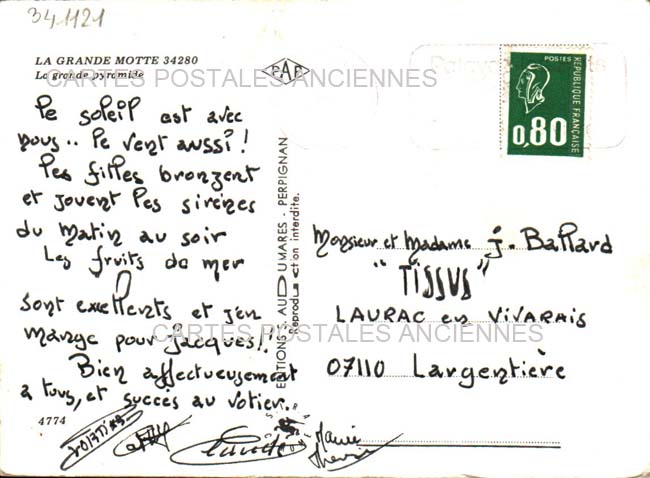 341121
LA GRANDE MOTTE 34280
La grande pyramide
PAP
CARTES POSTALES ANCIENNES
POSTES
RÉPUBLIQUE FRANÇAISE
0,80
le soleil est avec
nous.. le vent aussi!
les filles bronzent
et jouent les sirènes
du matin au soir
Les fruits de mer
sont excellents et j'en
mange pour Jacques!
Bien affectueusement
à tous, et succès au Votier.
4774
ÉDITIONS J. AUDUMARES - PERPIGNAN
Reproduction interdite.
Monsieur et Madame J. Ballard
"TISSUS"
LAURAC en VIVARAIS
07110 Largentière
CARTES POSTALES ANCIENNES
Marie